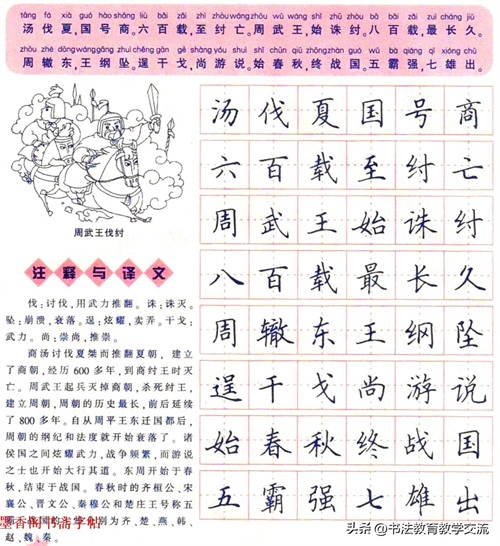 tāng fá xià guó hào shāng liù bǎi zǎi zhì zhòu wáng zhōu wǔ wáng shǐ zhū zhòu bā bǎi zǎi zuì cháng jiǔ
汤伐夏,国号商。六百载,至纣亡。周武王,始诛纣。八百载,最长久。
zhōu zhé dōng wáng gāng zhuì chěng gān gē shàng yóu shuì shǐ chūn qiū zhōng zhàn guó wǔ bà qiáng qī xióng chū
周辙东,王纲坠。逞干戈,尚游说。始春秋,终战国。五霸强,七雄出。
周武王伐纣
注释与译文
伐:讨伐,用武力推翻。诛:诛灭。
坠:崩溃,衰落。逞:炫耀,卖弄。干戈:
武力。尚:崇尚,推崇。
商汤讨伐夏桀而推翻夏朝,建立
了商朝,经历 600 多年,到商纣王时灭
亡。周武王起兵灭掉商朝,杀死纣王,
建立周朝,周朝的历史最长,前后延续
了 800 多年。自从周平王东迁国都后,
周朝的纲纪和法度就开始衰落了。诸
侯国之间炫耀武力,战争频繁,而游说
之士也开始大行其道。东周开始于春
秋,结束于战国。春秋时的齐桓公、宋
襄公、晋文公、秦穆公和楚庄王号称五
别为齐、楚、燕、韩、
赵、魏、秦。
汤伐夏国号商
六百载至纣亡
周武王始诛纣
八百载最长久
周辙东王纲坠
逞干戈尚游说
始春秋终战国
五霸强七雄出
头条 @书法教育教学交流